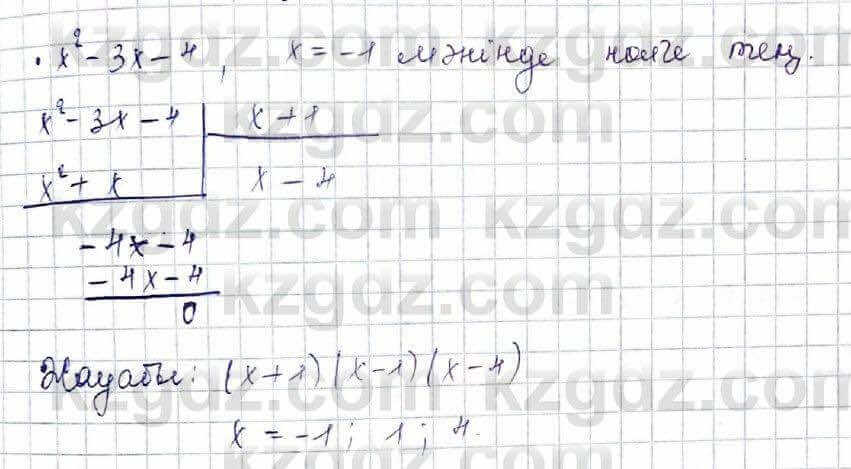 • x² - 3x - 4, x = -1 мәнінде нолге тең.
x² - 3x - 4 | x + 1
x² + x | x - 4
- 4x - 4
- 4x - 4
0
Жауабы: (x+1)(x-1)(x-4)
x = -1; 1; 4.
kzgdz.com kzgdz.com
kzgdz.com
kzgdz.com kzgdz.com
kzgdz.com
kzgdz.com kzgdz.com